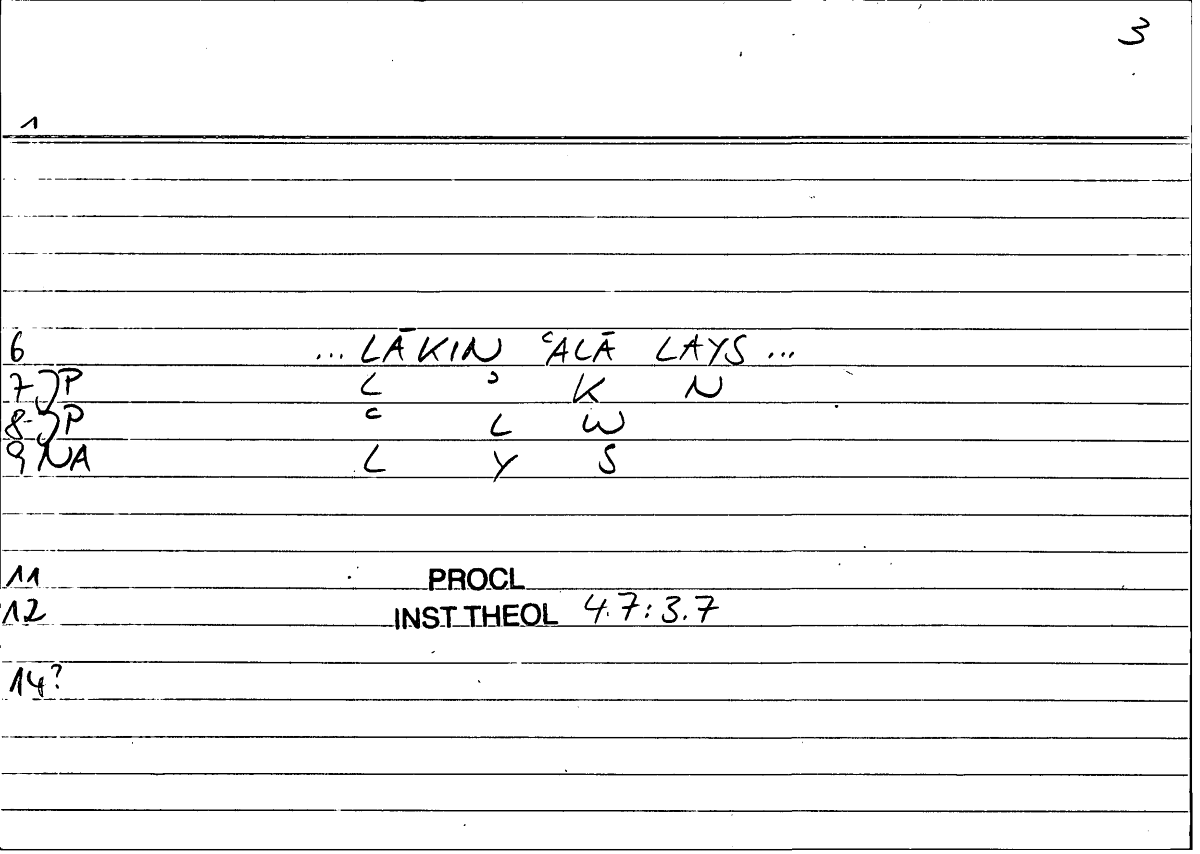 3
1
6 ... LĀKIN ʿALĀ LAYS ...
7 }P L ʾ K N
8 }P ʿ L W
9 NA L Y S
11 PROCL
12 INST THEOL 4.7:3.7
14?